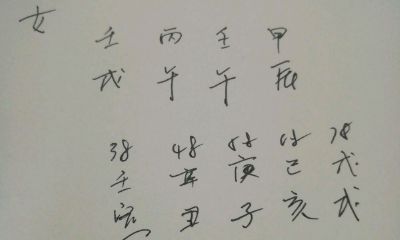 女 壬 丙 壬 甲
戌 午 午 辰
38 48 58 68 78
壬 辛 庚 己 戊
寅 丑 子 亥 戌